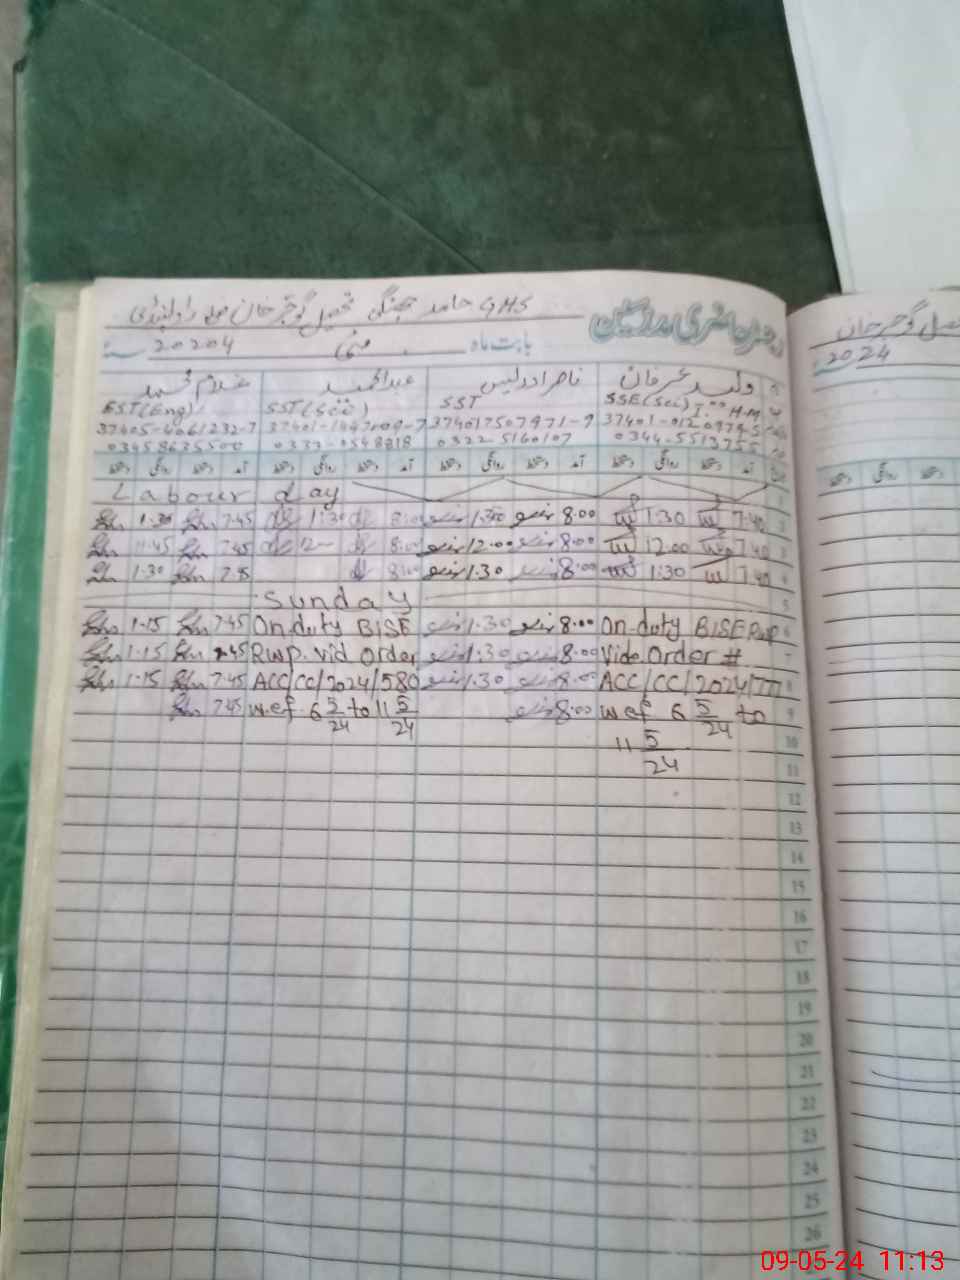 GHS حامد جھنگی تحصیل گوجر خان ضلع راولپنڈی
رجسٹر حاضری مدرسین
بابت ماہ مئی 20204
ولید عرفان ناصر ادریس عبدالحمید غلام محمد
SSE(Sci) I.. H.M SST SST(Sci) EST(Eng)
37401-0120979-5 374017507971-9 37405-4061232-7
0344-5513755 0322-5160107 0333-0548818 03458635500
آمد دستخط روانگی دستخط آمد دستخط روانگی دستخط آمد دستخط روانگی دستخط آمد دستخط روانگی دستخط
1 Labour day
2 7.40 1:30 8.00 1.30 8.00 1:30 7.45 1.30
3 7.40 12.00 8.00 12.00 8.00 12 7.45 11.45
4 7.40 1:30 8.00 1.30 8.00 7.45 1.30
5 Sunday
6 On duty BISE Rwp 8.00 1.30 On duty BISE 7.45 1.15
7 Vide Order # 8.00 1.30 Rwp. vid order 7.45 1.15
8 ACC/CC/2024/777 8.00 1.30 ACC/CC/2024/580 7.45 1.15
9 w.e.f 6 5/24 to 8.00 w.e.f 6 5/24 to 11 5/24 7.45
10 11 5/24
11
12
13
14
15
16
17
18
19
20
21
22
23
24
25
26
گوجر خان
2024
دستخط روانگی دستخط
09-05-24 11:13